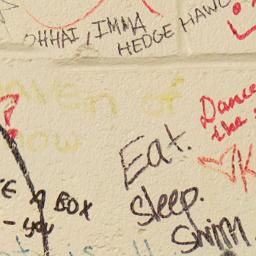 OHHAI, IMMA
HEDGE HAWG
Dance
the
Eat.
Sleep.
Swim.
A BOX
- you